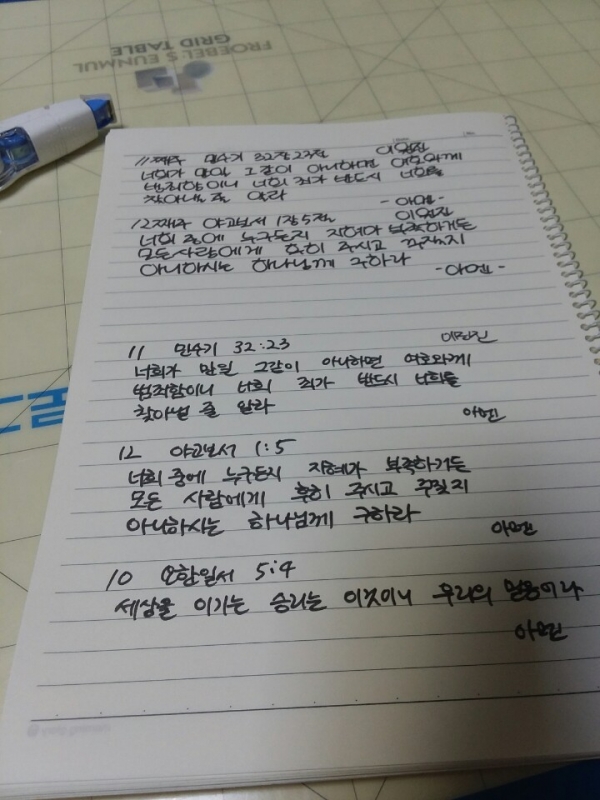 FROEBEL'S EUNMUL
GRID TABLE
11째주 민수기 32장 23절
너희가 만일 그같이 아니하면 여호와께
범죄함이니 너희 죄가 반드시 너희를
찾아낼 줄 알라
-아멘-
12째주 야고보서 1장 5절
너희 중에 누구든지 지혜가 부족하거든
모든 사람에게 후히 주시고 꾸짖지
아니하시는 하나님께 구하라
-아멘-
11 민수기 32:23
너희가 만일 그같이 아니하면 여호와께
범죄함이니 너희 죄가 반드시 너희를
찾아낼 줄 알라
아멘
12 야고보서 1:5
너희 중에 누구든지 지혜가 부족하거든
모든 사람에게 후히 주시고 꾸짖지
아니하시는 하나님께 구하라
아멘
10 요한일서 5:4
세상을 이기는 승리는 이것이니 우리의 믿음이라
아멘